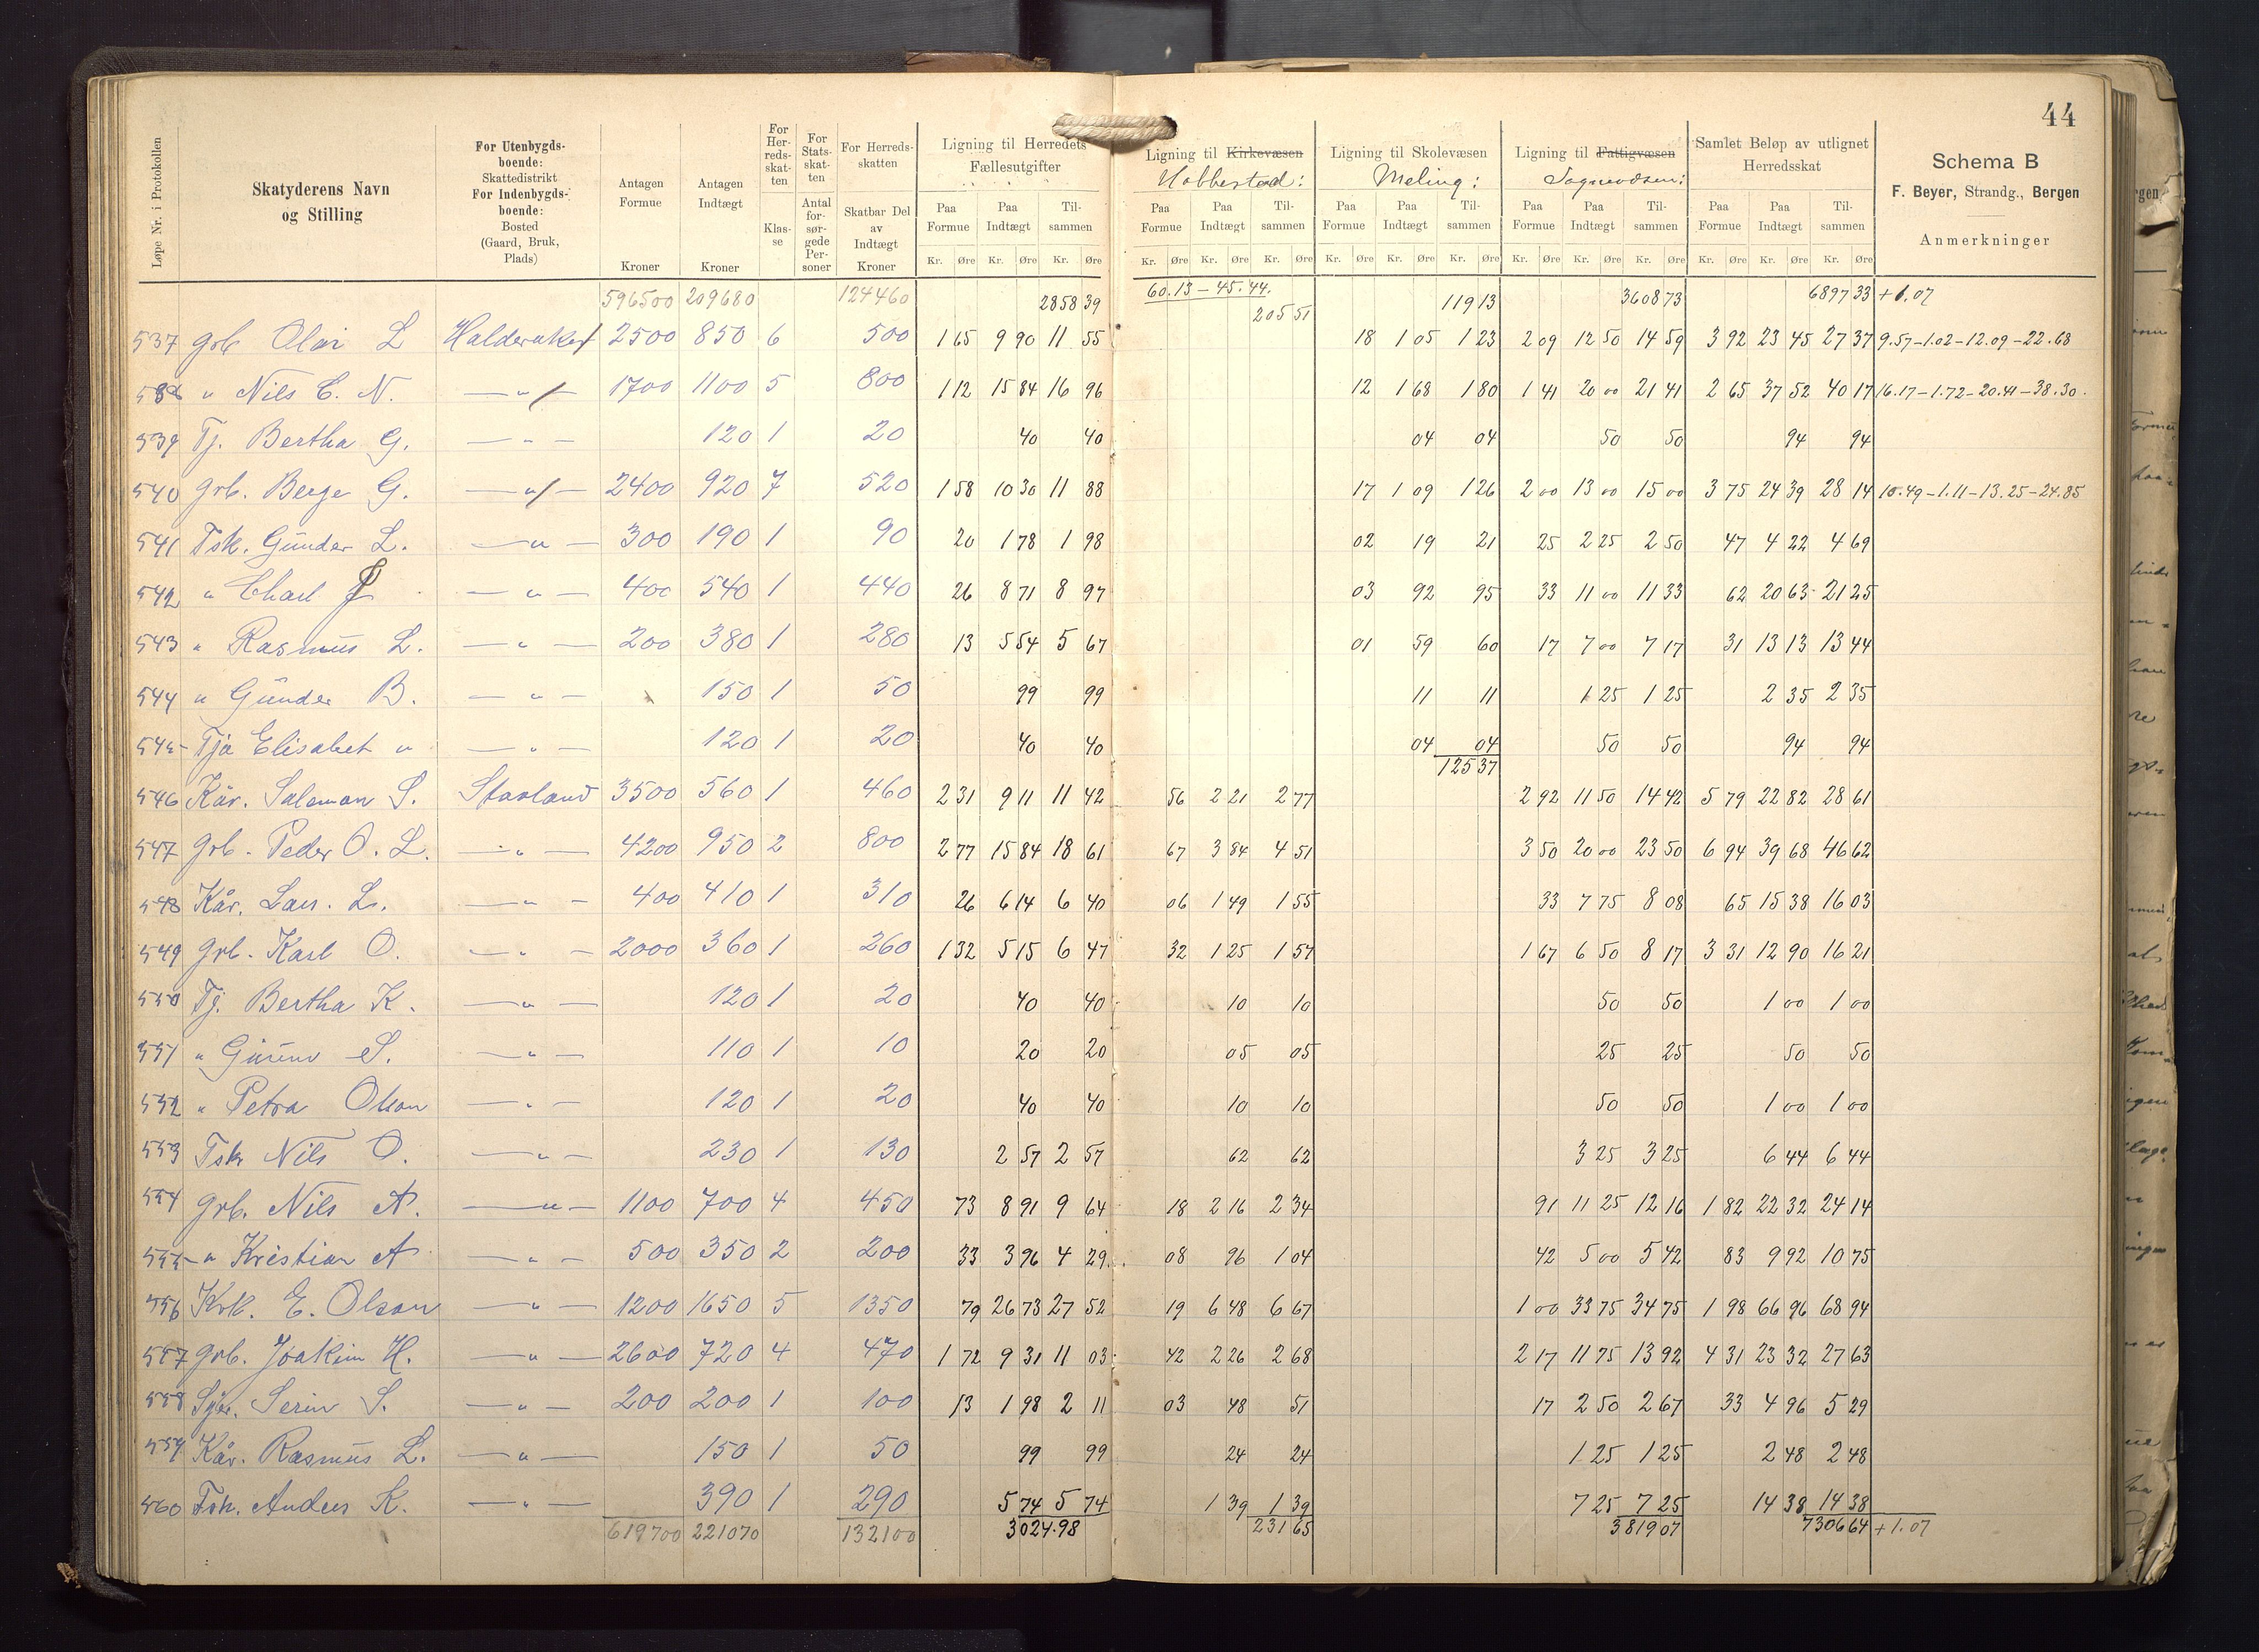 44
Løpe Nr. i Protokollen
Skatyderens Navn og Stilling
For Utenbygds-boende: Skattedistrikt For Indenbygds-boende: Bosted (Gaard, Bruk, Plads)
Antagen Formue Kroner
Antagen Indtægt Kroner
For Her-reds-skat-ten Klas-se
For Stats-skat-ten Antal for-sør-gede Per-soner
For Herreds-skatten Skatbar Del av Indtægt Kroner
Ligning til Herredets Fællesutgifter
Paa Formue Paa Indtægt Til-sammen
Kr. Øre Kr. Øre Kr. Øre
Ligning til Kirkevæsen
Paa Formue Paa Indtægt Til-sammen
Kr. Øre Kr. Øre Kr. Øre
Ligning til Skolevæsen
Meling:
Paa Formue Paa Indtægt Til-sammen
Kr. Øre Kr. Øre Kr. Øre
Ligning til Fattigvæsen
Paa Formue Paa Indtægt Til-sammen
Kr. Øre Kr. Øre Kr. Øre
Samlet Beløp av utlignet Herredsskat
Paa Formue Paa Indtægt Til-sammen
Kr. Øre Kr. Øre Kr. Øre
Schema B
F. Beyer, Strandg., Bergen
Anmerkninger
596500 209680 124460 2858 39 60.13 – 45.44. 205 51 119 13 3608 73 6897 33 + 1.07
537 Grb Olai L Halderaker 2500 850 6 500 1 65 9 90 11 55 18 1 05 1 23 2 09 12 50 14 59 3 92 23 45 27 37 9.57 – 1.02 – 12.09 – 22.68
538 " Nils E. N. — " — 1700 1100 5 800 1 12 15 84 16 96 12 1 68 1 80 1 41 20 00 21 41 2 65 37 52 40 17 16.17 – 1.72 – 20.41 – 38.30
539 Tj. Bertha G. — " — 120 1 20 40 40 04 04 50 50 94 94
540 Grb. Berge G. — " — 2400 920 7 520 1 58 10 30 11 88 17 1 09 1 26 2 00 13 00 15 00 3 75 24 39 28 14 10.49 – 1.11 – 13.25 – 24.85
541 Fsk. Gunder L. — " — 300 190 1 90 20 1 78 1 98 02 19 21 25 2 25 2 50 47 4 22 4 69
542 " Charl — " — 400 540 1 440 26 8 71 8 97 03 92 95 33 11 00 11 33 62 20 63 21 25
543 " Rasmus L. — " — 200 380 1 280 13 5 54 5 67 01 59 60 17 7 00 7 17 31 13 13 13 44
544 " Gunder B. — " — 150 1 50 99 99 11 11 1 25 1 25 2 35 2 35
545 Tja Elisabet " — " — 120 1 20 40 40 04 04 50 50 94 94
125 37
546 Kår. Salamon S. Stavland 3500 560 1 460 2 31 9 11 11 42 56 2 21 2 77 2 92 11 50 14 42 5 79 22 82 28 61
547 Grb. Peder O. L. — " — 4200 950 2 800 2 77 15 84 18 61 67 3 84 4 51 3 50 20 00 23 50 6 94 39 68 46 62
548 Kår. Lars. L. — " — 400 410 1 310 26 6 14 6 40 06 1 49 1 55 33 7 75 8 08 65 15 38 16 03
549 Grb. Karl O. — " — 2000 360 1 260 1 32 5 15 6 47 32 1 25 1 57 1 67 6 50 8 17 3 31 12 90 16 21
550 Tj. Bertha K. — " — 120 1 20 40 40 10 10 50 50 1 00 1 00
551 " S. — " — 110 1 10 20 20 05 05 25 25 50 50
552 " Petra Olson — " — 120 1 20 40 40 10 10 50 50 1 00 1 00
553 Fsk Nils O. — " — 230 1 130 2 57 2 57 62 62 3 25 3 25 6 44 6 44
554 Grb. Nils A. — " — 1100 700 4 450 73 8 91 9 64 18 2 16 2 34 91 11 25 12 16 1 82 22 32 24 14
555 " Kristian A — " — 500 350 2 200 33 3 96 4 29 08 96 1 04 42 5 00 5 42 83 9 92 10 75
556 E. Olson — " — 1200 1650 5 1350 79 26 73 27 52 19 6 48 6 67 1 00 33 75 34 75 1 98 66 96 68 94
557 Grb. Joakim H. — " — 2600 720 4 470 1 72 9 31 11 03 42 2 26 2 68 2 17 11 75 13 92 4 31 23 32 27 63
558 S. — " — 200 200 1 100 13 1 98 2 11 03 48 51 17 2 50 2 67 33 4 96 5 29
559 Kår. Rasmus L. — " — 150 1 50 99 99 24 24 1 25 1 25 2 48 2 48
560 Fsk. Anders K. — " — 390 1 290 5 74 5 74 1 39 1 39 7 25 7 25 14 38 14 38
619700 221070 132100 3024.98 231 65 3819 07 7306 64 + 1.07